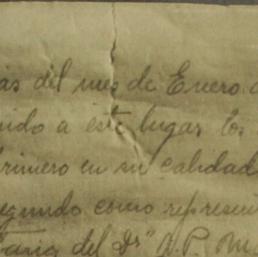 ias del mes de Enero d
nido a este lugar los
primero en su calidad
segundo como represen
taria del Dr" A. P. Mo